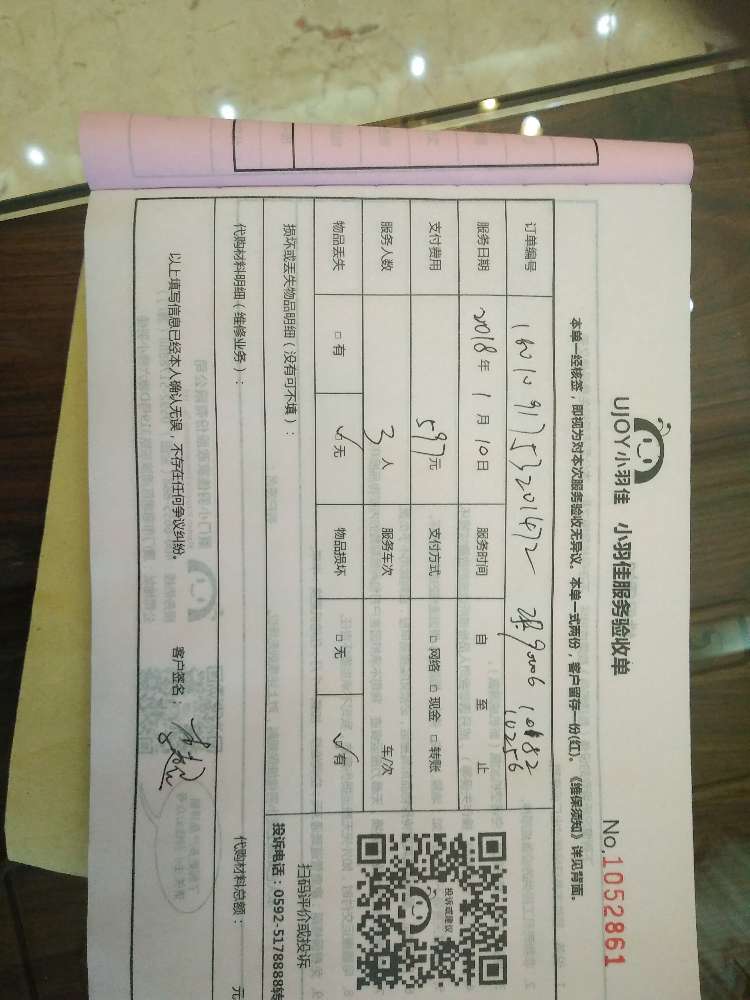 UJOY小羽佳 小羽佳服务验收单
No.1052861
本单一经核签，即视为对本次服务验收无异议。本单一式两份，客户留存一份(红)。《维保须知》详见背面。
订单编号
服务日期 2018年 1月 10日 服务时间 自 至 止
支付费用 597元 支付方式 □ 网络 □ 现金 □ 转账
服务人数 3人 服务车次 车/次
物品丢失 □ 有 ☑ 无 物品损坏 □ 无 ☑ 有
损坏或丢失物品明细（没有可不填）：
代购材料明细（维修业务）： 代购材料总额： 元
以上填写信息已经本人确认无误，不存在任何争议纠纷。 客户签名：
投诉或建议
扫码评价或投诉
投诉电话：0592-5178888转